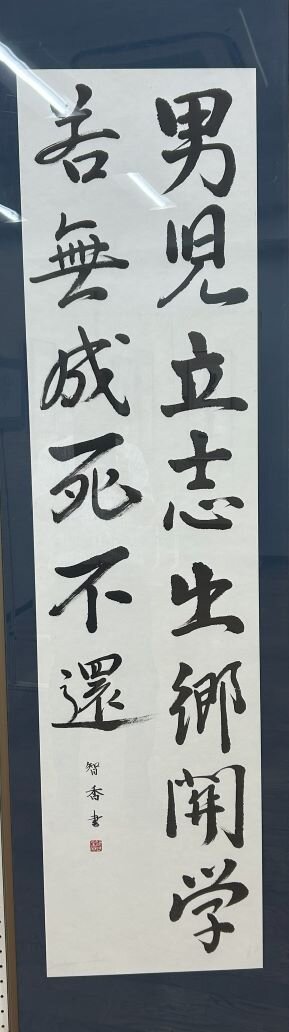 男児立志出郷関学
若無成死不還
智香書